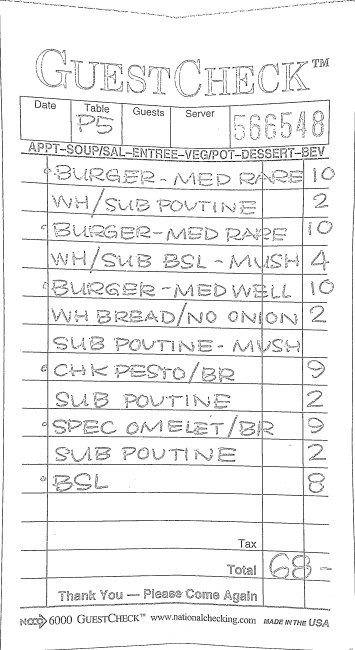 GUESTCHECK™
Date Table Guests Server
P5 566548
APPT-SOUP/SAL-ENTREE-VEG/POT-DESSERT-BEV
BURGER - MED RARE 10
WH/SUB POUTINE 2
BURGER-MED RARE 10
WH/SUB BSL - MUSH 4
BURGER - MED WELL 10
WH BREAD/NO ONION 2
SUB POUTINE - MUSH
CHK PESTO/BR 9
SUB POUTINE 2
SPEC OMELET/BR 9
SUB POUTINE 2
BSL 8
Tax
Total 68-
Thank You — Please Come Again
NCCO 6000 GUESTCHECK™ www.nationalchecking.com MADE IN THE USA